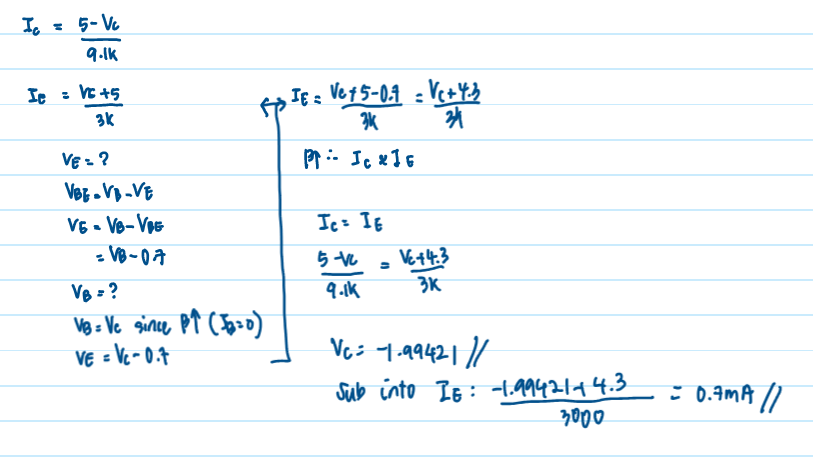 Ic = 5-Vc / 9.1k
IE = VE+5 / 3k
VE = ?
VBE = VB-VE
VE = VB-VBE
= VB-0.7
VB = ?
VB = Vc since β↑ (IB=0)
VE = Vc-0.7
↔ IE = Vc+5-0.7 / 3k = Vc+4.3 / 3k
β↑ ∴ Ic ≈ IE
Ic = IE
5-Vc / 9.1k = Vc+4.3 / 3k
Vc = -1.99421 //
Sub into IE : -1.99421+4.3 / 3000 = 0.7mA //